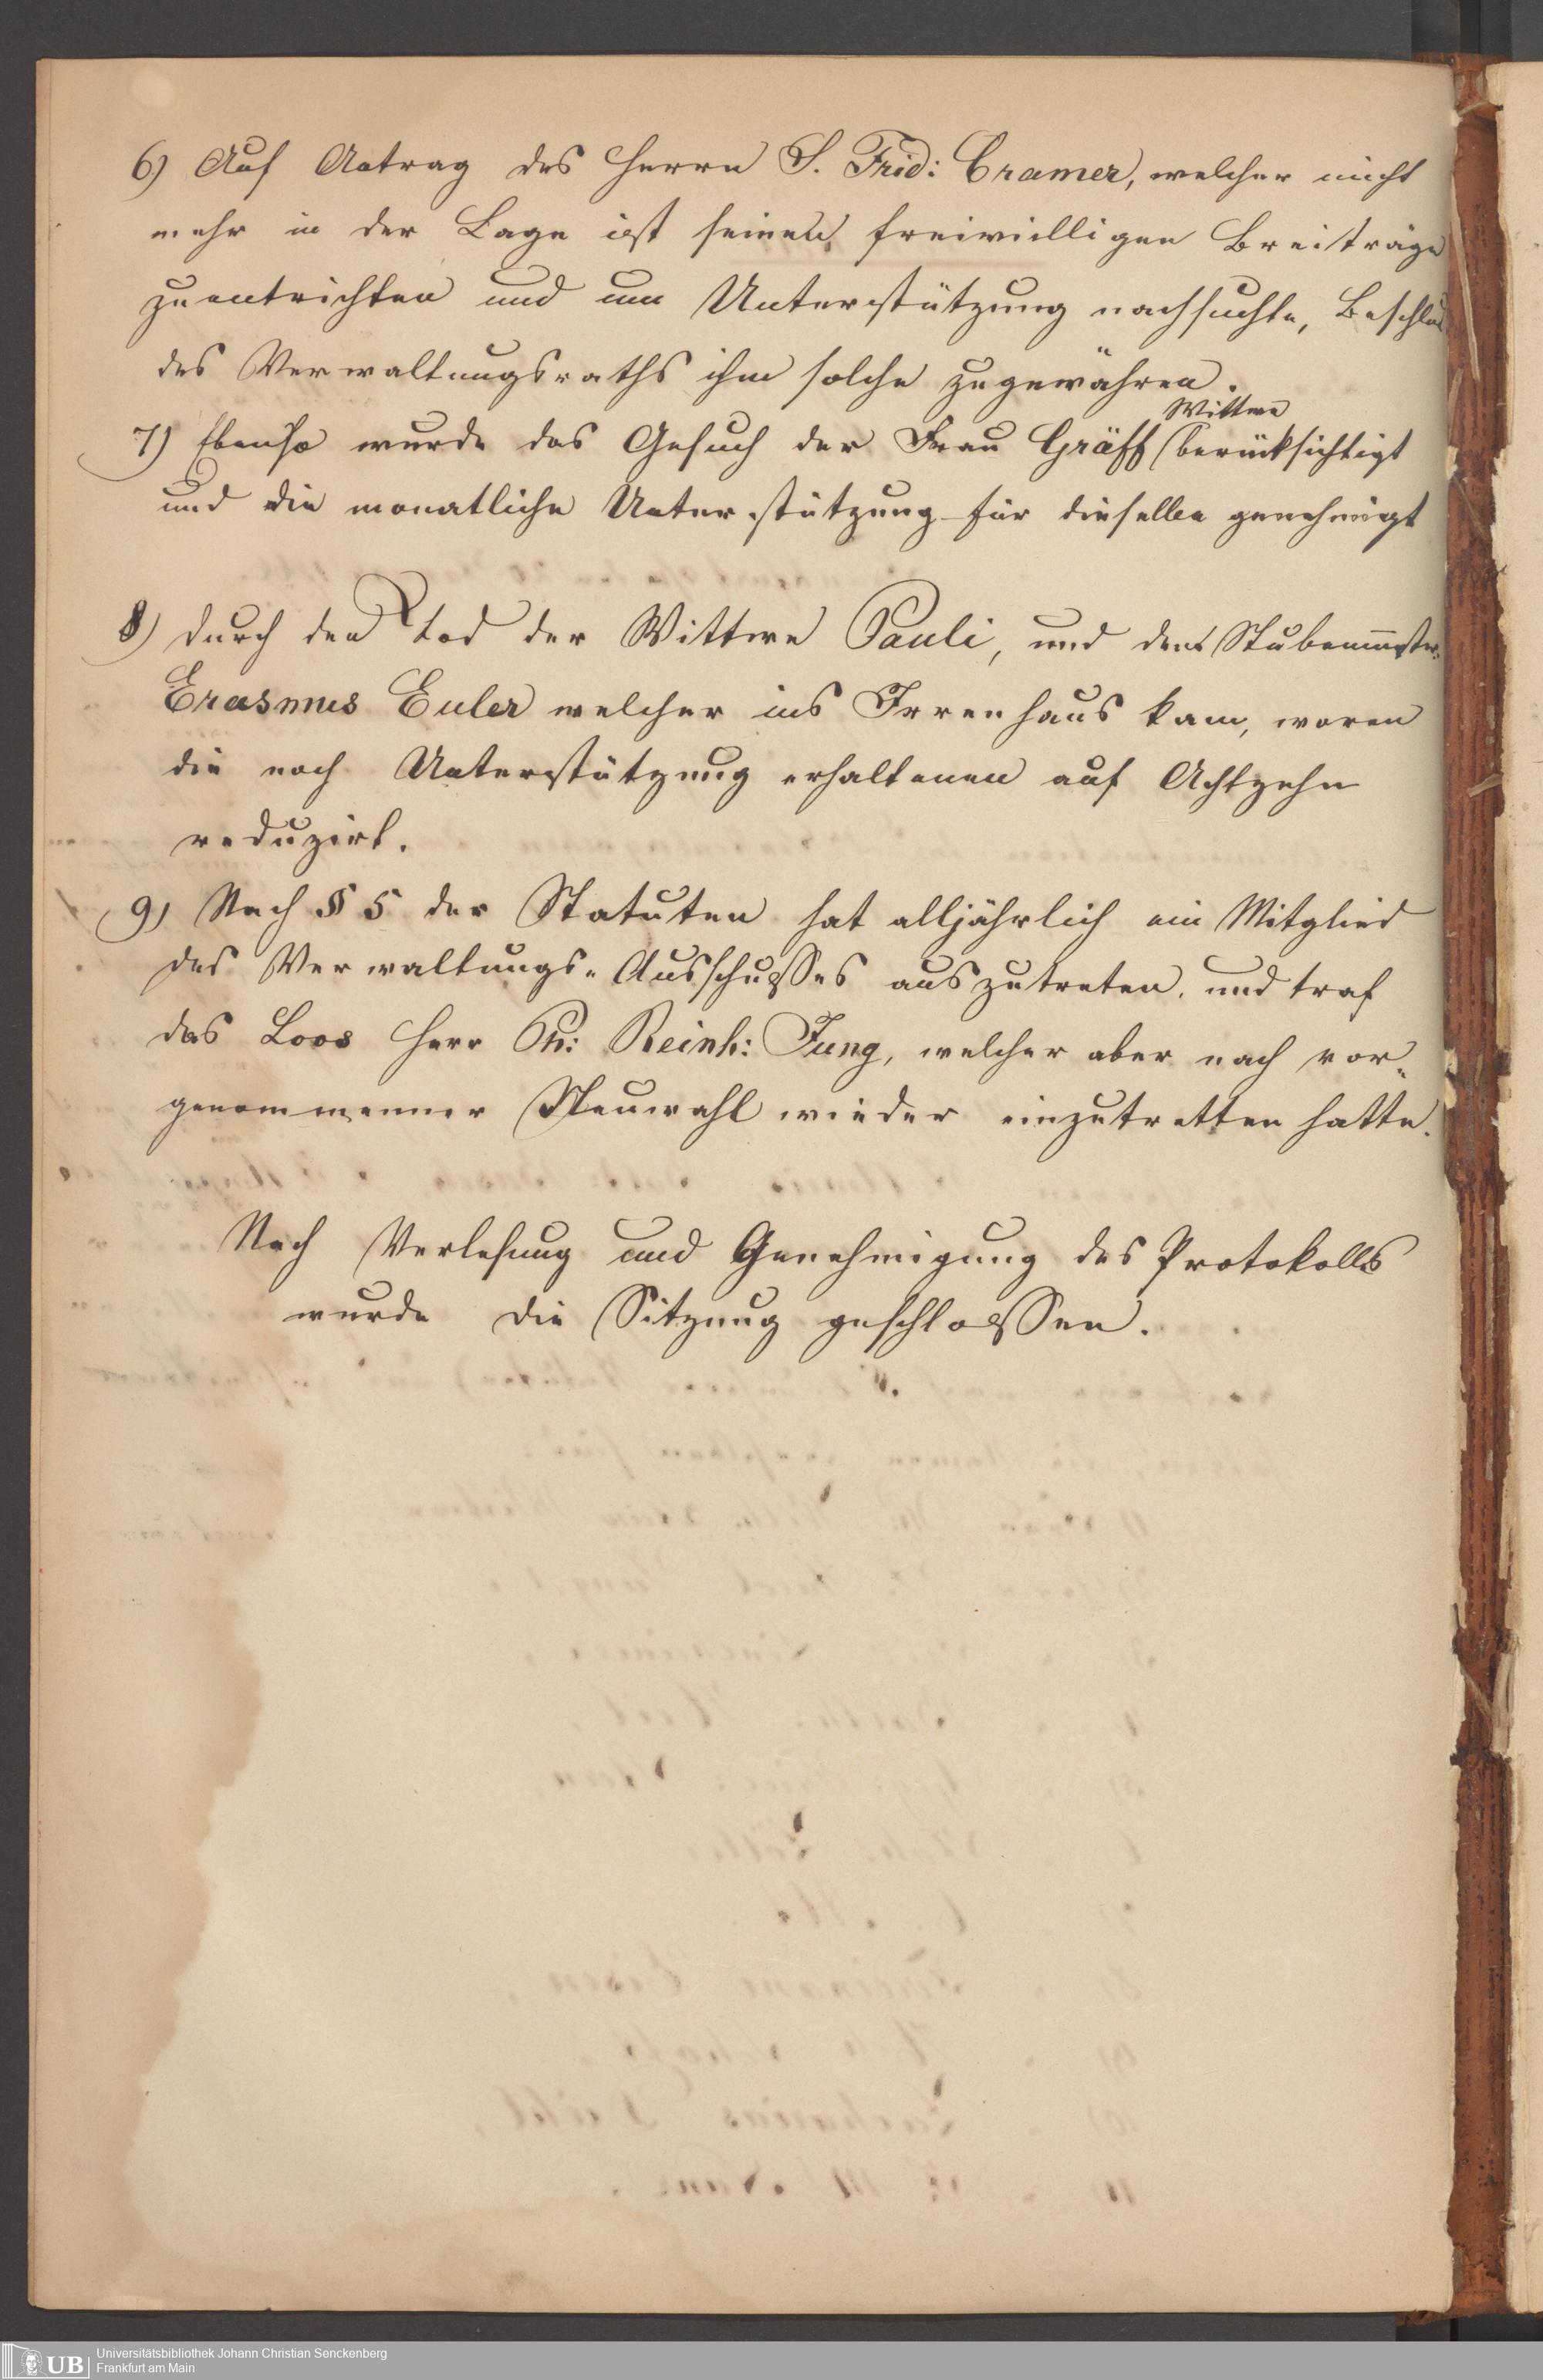 6) Auf Antrag des Herrn S. Frid: Cramer, welcher nicht
mehr in der Lage ist seinen freiwilligen Breiträge
zu entrichten und um Unterstützung nachsuchte, Beschluß
des Verwaltungsraths ihm solche zu gewähren.
Wittwe
7) Ebenso wurde das Gesuch der Frau Gräff berücksichtigt
und die monatliche Unterstützung für dieselbe genehmigt
8) durch den Tod der Wittwe Pauli, und den Stubenmstr.
Erasmus Euler welcher ins Irrenhaus kam, waren
die noch Unterstützung erhaltenen auf Achtzehn
reduzirt.
9) Nach § 5 der Statuten hat alljährlich ein Mitglied
des Verwaltungs-Ausschusses auszutreten, und traf
das Loos Herr Ph: Reinh: Jung, welcher aber nach vor-
genommenner Neuwahl wieder einzutretten hatte.
Nach Verlesung und Genehmigung des Protokolls
wurde die Sitzung geschlossen.
UB
Universitätsbibliothek Johann Christian Senckenberg
Frankfurt am Main